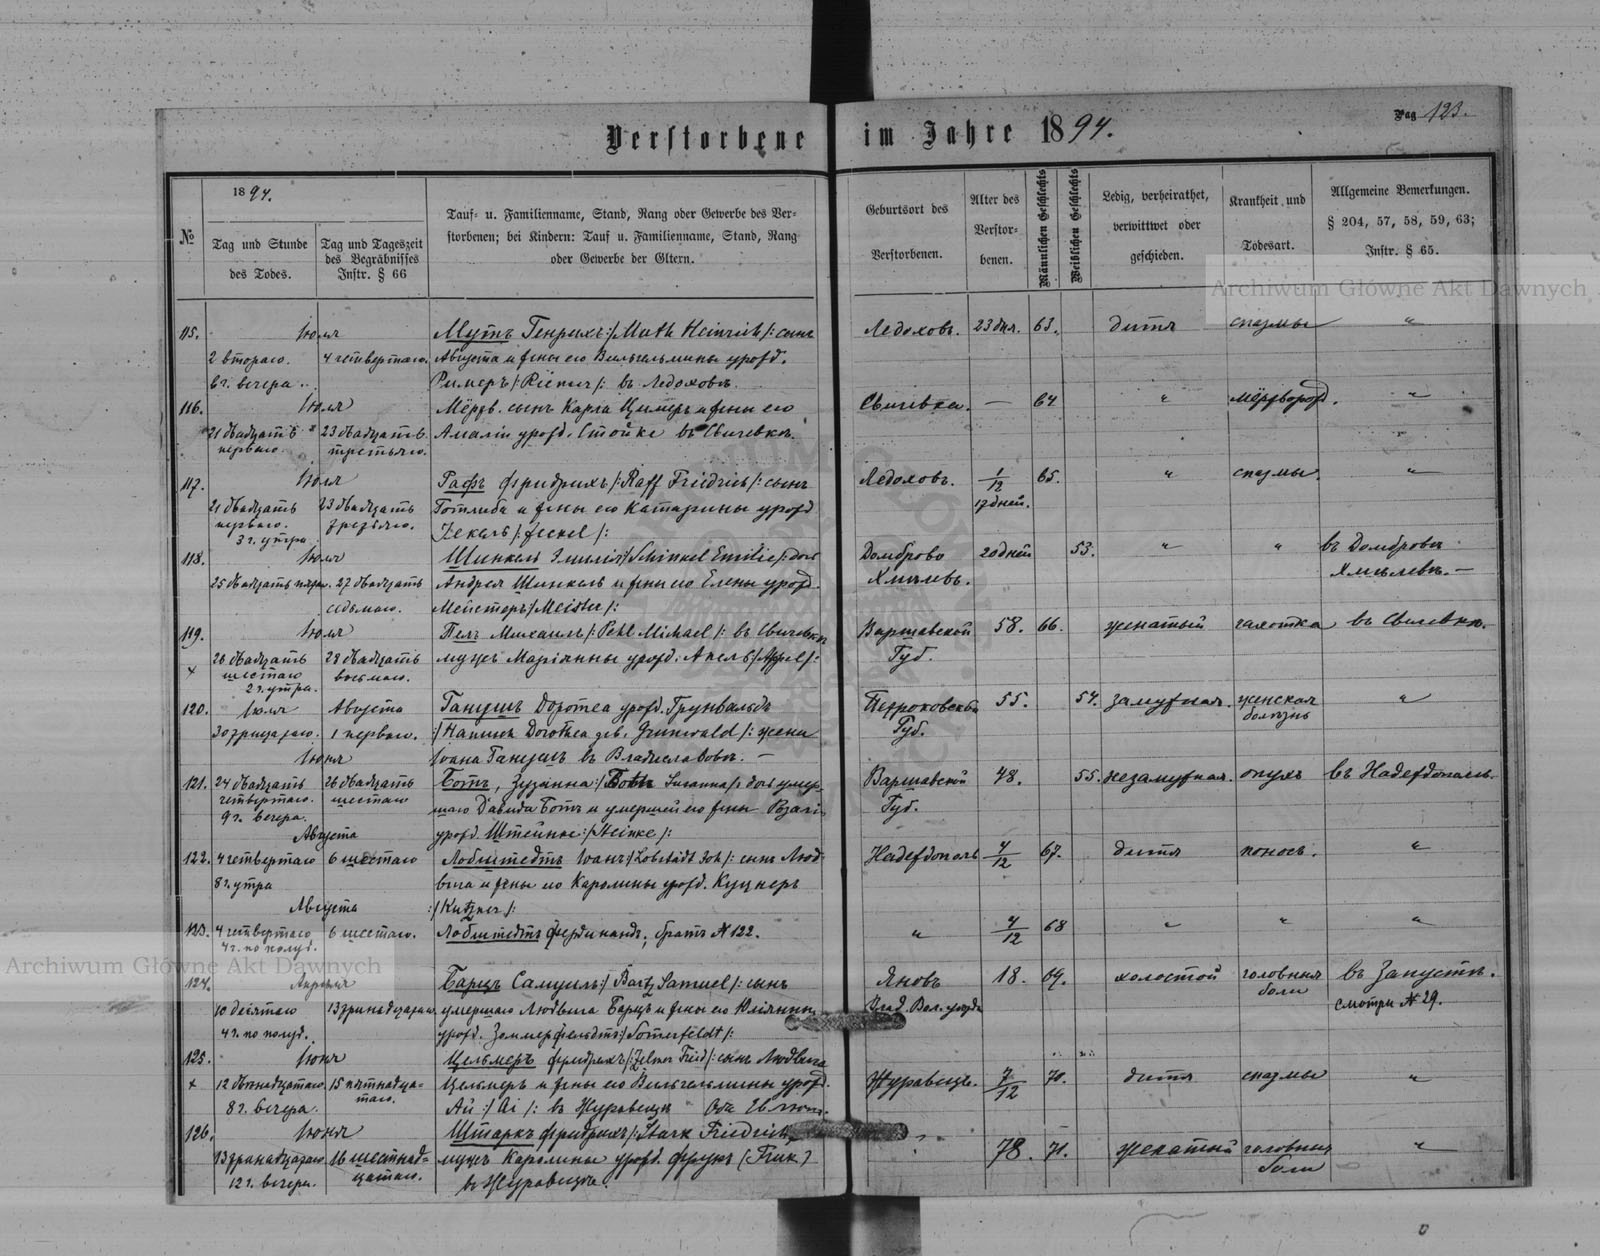 Pag 123.
Verstorbene im Jahre 1894.
№
1894.
Tag und Stunde
des Todes.
Tag und Tageszeit
des Begräbnisses
Instr. § 66
Tauf- u. Familienname, Stand, Rang oder Gewerbe des Ver-
storbenen; bei Kindern: Tauf u. Familienname, Stand, Rang
oder Gewerbe der Eltern.
Geburtsort des
Verstorbenen.
Alter des
Verstor-
benen.
Männlichen Geschlechts
Weiblichen Geschlechts
Ledig, verheirathet,
verwittwet oder
geschieden.
Krankheit und
Todesart.
Allgemeine Bemerkungen.
§ 204, 57, 58, 59, 63;
Instr. § 65.
Archiwum Główne Akt Dawnych
115. Июля Мутъ Генрихъ /: Muth Heinrich /: сынъ Ледоховъ. 23 дня. 63. дитя спазмы "
2 втораго. 4 четвертаго. Августа и жены его Вильгельмины урожд.
6 г. вечера. Римеръ /: Riemer /: въ Ледоховѣ.
116. Июля Мёртв. сынъ Карла Цимеръ и жены его Свичевка. — 64 " мёртворожд. "
21 двадцать 23 двадцать Амалiи урожд. Стойке въ Свичевкѣ.
перваго. третьяго.
117. Июля Рафъ Фридрихъ /: Raff Friedrich /: сынъ Ледоховъ. 1/12 65. " спазмы. "
21 двадцать 23 двадцать Готлиба и жены его Катарины урожд 17 дней.
перваго. третьяго.
3 г. утра Іекель /: Jeckel /:
118. Июля Шинкель Эмилiя /: Schinkel Emilie /: дочь Домброво 20 дней 53. " " въ Домбровѣ
25 двадцать пятаго. 27 двадцать Андрея Шинкель и жены его Елены урожд. Хмѣлевъ. Хмѣлевѣ. —
седьмаго. Мейстеръ /: Meister /:
119. Июля Пель Михаилъ /: Pehl Michael /: въ Свичевкѣ Варшавской 58. 66. женатый чахотка въ Свичевкѣ.
26 двадцать 28 двадцать мужъ Марiянны урожд. Апель /: Appel /: Губ.
шестаго восьмаго.
2 г. утра.
120. Июля Августа Ганушъ Доротеа урожд. Грунвальдъ Петроковской 55. 54. замужная. женская "
болѣзнь
30 тридцатаго. 1 перваго. /: Hanusch Dorothea geb. Grunwald /: жена Губ.
Июня Іоана Ганушъ въ Владиславовѣ. —
121. 24 двадцать 26 двадцать Ботъ, Зузанна /: Both Susanna /: дочь умер- Варшавской 48. 55. незамужная. опухъ въ Надеждополь.
четвертаго. шестаго шаго Давида Ботъ и умершей его жены Розалi Губ.
9 г. вечера.
Августа урожд. Штейнке /: Steinke /:
122. 4 четвертаго 6 шестаго Лобштедтъ Іоанъ /: Lobstädt Joh /: сынъ Люд- Надеждополь 4/12 67. дитя поносъ. "
8 г. утра вига и жены его Каролины урожд. Куцнеръ
Августа /: Kutzner /:
123. 4 четвертаго 6 шестаго. Лобштедтъ Фердинандъ, братъ № 122. " 4/12 68 " " "
4 г. по полуд.
Archiwum Główne Akt Dawnych
124. Апрѣля Барцъ Самуилъ /: Bartz Samuel /: сынъ Яновъ 18. 69. холостой головныя въ Запустѣ.
боли
10 десятаго 13 тринадцатаго умершаго Людвига Барцъ и жены его Юлiянны Влад. Вол. уѣзда смотри № 29.
4 г. по полуд. урожд. Зоммерфельдтъ /: Somerfeldt /:
125. Июня Цельмеръ Фридрихъ /: Zelmer Fried /: сынъ Людвига
12 двѣнадцатаго 15 пятнадца- Цельмеръ и жены его Вильгельмины урожд. Журавецъ. 7/12 70. дитя спазмы "
таго.
8 г. вечера. Ай /: Ai /: въ Журавецѣ
126. Июня Штаркъ Фридрихъ /: Stark Friedrich " 78. 71. женатый головныя "
боли
13 тринадцатаго 16 шестнад- мужъ Каролины урожд. Фрикъ (Frick)
цатаго.
12 г. вечера. въ Журавецѣ.